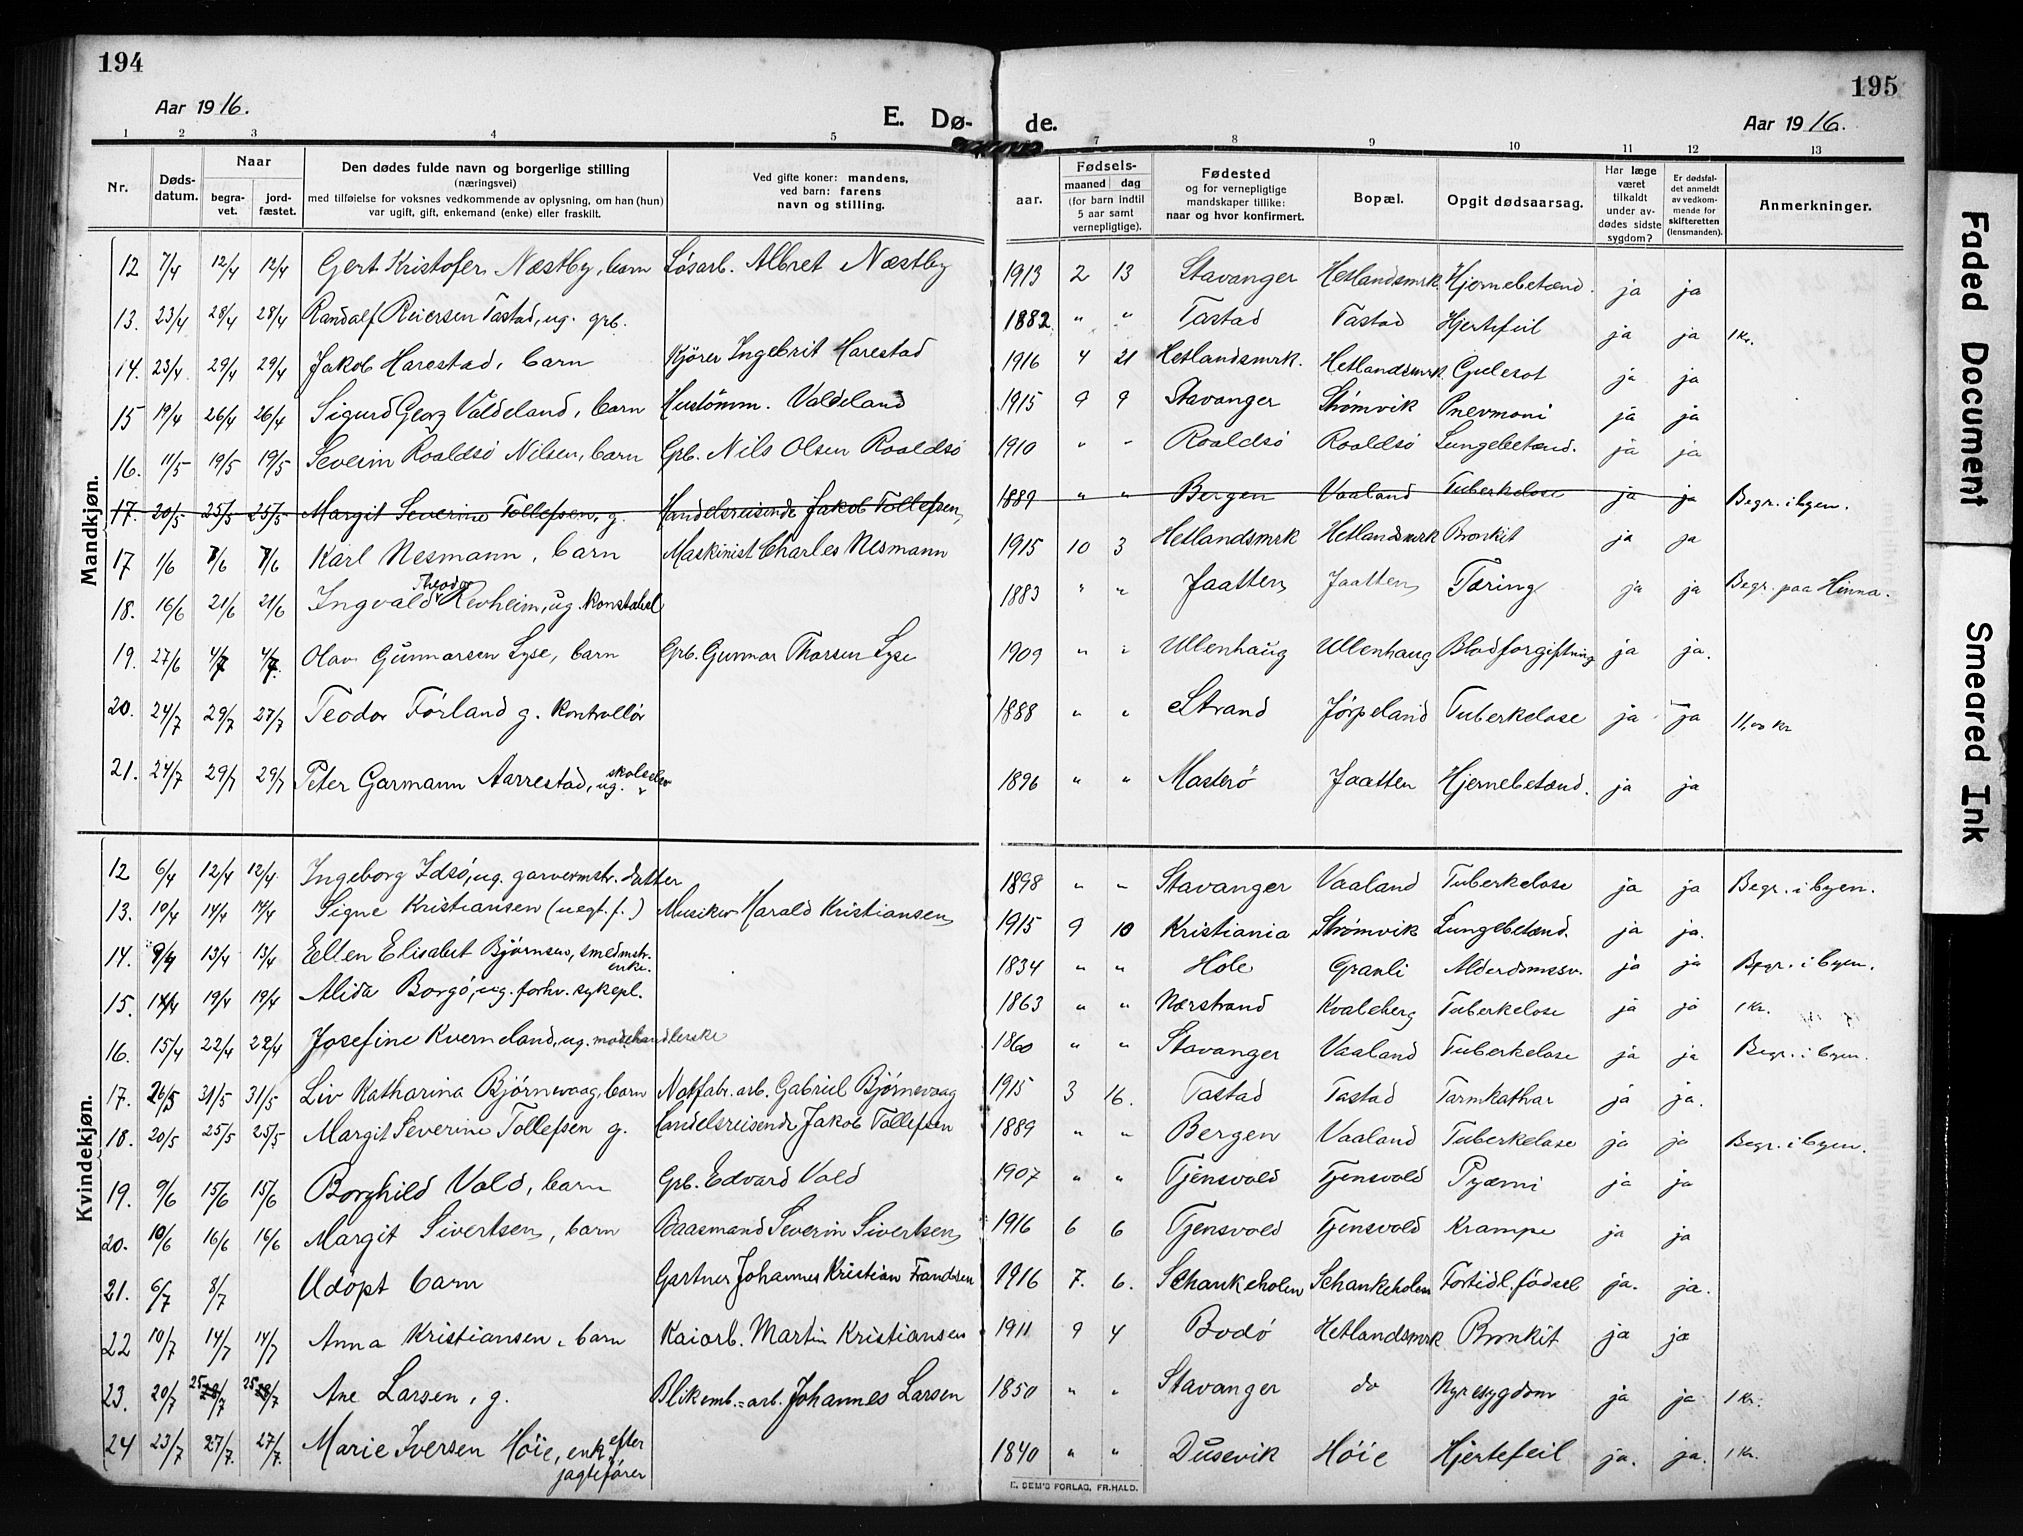 194
195
Aar 1916.
E. Dø- de.
Aar 1916.
1 2 3 4 5 7 8 9 10 11 12 13
Nr.
Døds-
datum.
Naar
begra-
vet.
jord-
fæstet.
Den dødes fulde navn og borgerlige stilling
(næringsvei)
med tilføielse for voksnes vedkommende av oplysning, om han (hun)
var ugift, gift, enkemand (enke) eller fraskilt.
Ved gifte koner: mandens,
ved barn: farens
navn og stilling.
aar.
Fødsels-
maaned dag
(for barn indtil
5 aar samt
vernepligtige).
Fødested
og for vernepligtige
mandskaper tillike:
naar og hvor konfirmert.
Bopæl.
Opgit dødsaarsag.
Har læge
været
tilkaldt
under av-
dødes sidste
sygdom?
Er dødsfal-
det anmeldt
av vedkom-
mende for
skifteretten
(lensmanden).
Anmerkninger.
Mandkjøn.
12 7/4 12/4 12/4 Gert Kristofer Næstby, barn Løsarb. Albret Næstby 1913 2 13 Stavanger Hetlandsmrk. Hjernebetænd. ja ja
13. 23/4 28/4 28/4 Randalf Reiersen Tastad, ug. grb. 1882 " " Tastad Tastad Hjertefeil ja ja 1 kr.
14. 23/4 29/4 29/4 Jakob Harestad, barn Kjörer Ingebrit Harestad 1916 4 21 Hetlandsmrk. Hetlandsmrk. Gulesot ja ja
15 19/4 26/4 26/4 Sigurd Georg Valdeland, barn Hustömm. Valdeland 1915 9 9 Stavanger Strømvik Pnevmoni ja ja
16. 11/5 19/5 19/5 Severin Roaldsö Nilsen, barn Grb. Nils Olsen Roaldsö 1910 " " Roaldsö Roaldsö Lungebetænd. ja ja
17. 20/5 25/5 25/5 Margit Severine Tollefsen, g. Handelsreisende Jakob Tollefsen, 1889 " " Bergen Vaaland Tuberkelose ja ja Begr. i byen.
17 1/6 7/6 7/6 Karl Nesmann, barn Maskinist Charles Nesmann 1915 10 3 Hetlandsmrk Hetlandsmrk Bronkit ja ja
18. 16/6 21/6 21/6 Ingvald Theodor Revheim, ug. konstabel 1883 " " Jaatten Jaatten Tæring ja ja Begr. paa Hinna.
19. 27/6 4/7 4/7 Olav Gunnarsen Lyse, barn Grb. Gunnar Thorsen Lyse 1909 " " Ullenhaug Ullenhaug Blodforgiftning ja ja.
20. 24/7 29/7 27/7 Teodor Förland g. kontrollör 1888 " " Strand Jörpeland Tuberkelose ja ja 11,00 kr
21. 24/7 29/7 29/7 Peter Garmann Aarrestad, ug. skoleelev 1896 " " Mosterö Jaatten Hjernebetænd. ja ja
Kvindekjøn.
12 6/4 12/4 12/4 Ingeborg Idsö, ug. garvermstr. datter 1898 " " Stavanger Vaaland Tuberkelose ja ja Begr. i byen.
13. 10/4 14/4 14/4 Signe Kristiansen (uegt. f.) Musiker Harald Kristiansen 1915 9 10 Kristiania Strømvik Lungebetænd. ja ja.
14. 9/4 13/4 13/4 Ellen Elisabet Bjørnsen, smedmstr. enke. 1834 " " Hole Granli Alderdomssv. ja ja Begr. i byen.
15. 14/4 19/4 19/4 Alida Borgö, ug. forhv. sykepl. 1863 " " Nærstrand Kvaleberg Tuberkelose ja ja 1 Kr.
16. 15/4 22/4 22/4 Josefine Kverneland, ug. modehandlerske 1860 " " Stavanger Vaaland Tuberkelose ja ja Begr. i byen.
17. 26/5 31/5 31/5 Liv Katharina Bjørnevaag, barn Notfabr. arb. Gabriel Bjørnevaag 1915 3 16. Tastad Tastad Tarmkathar ja ja.
18. 20/5 25/5 25/5 Margit Severine Tollefsen g. Handelsreisende Jakob Tollefsen 1889 " " Bergen Vaaland Tuberkelose ja ja Begr. i byen.
19. 9/6 15/6 15/6 Borghild Vold, barn Grb. Edvard Vold 1907 " " Tjensvold Tjensvold Pyæmi ja ja
20. 10/6 16/6 16/6 Margit Sivertsen, barn Baasmand Severin Sivertsen 1916 6 6 Tjensvold Tjensvold Krampe ja ja
21. 6/7 8/7 Udöpt barn Gartner Johannes Kristian Frandsen 1916 7. 6. Schankeholen Schankeholen Fortidl. födsel ja. ja.
22 10/7 14/7 14/7 Anna Kristiansen, barn Kaiarb. Martin Kristiansen 1911 9 4 Bodö Hetlandsmrk Bronkit ja ja
23. 20/7 25/7 25/7 Ane Larsen, g. Blikemb.=arb. Johannes Larsen 1850 " " Stavanger do Nyresygdom ja ja 1 Kr.
24 23/7 27/7. 27/7. Marie Iversen Höie, enke efter jagtefører 1840 " " Dusevik Höie Hjertefeil ja. ja. 1 Kr.
E. SEM'S FORLAG, FR.HALD.
Faded Document
Smeared Ink